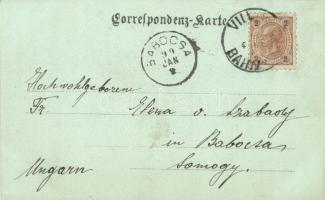 Correspondenz-Karte
BABOCSA
99
JAN
2
VILL
BAHN
2
2
Hochwohlgeboren
Fr. Elena v. Szabady
in Babocsa
Ungarn Somogy.